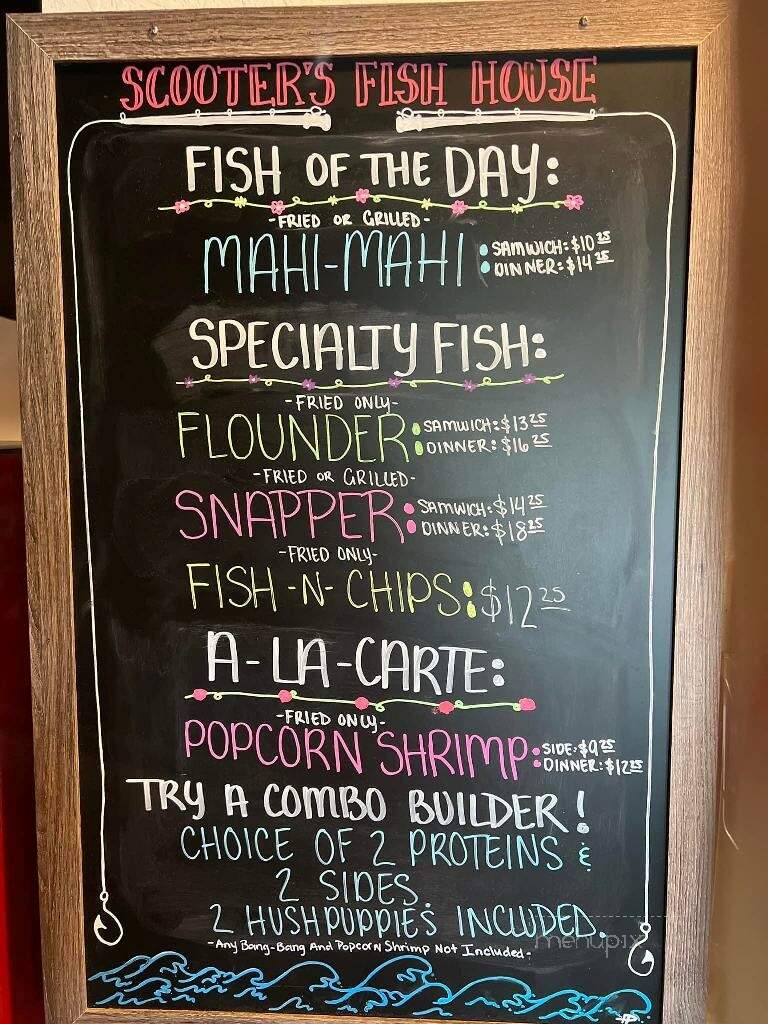 SCOOTER'S FISH HOUSE
FISH OF THE DAY:
-FRIED OR GRILLED-
MAHI-MAHI • SAMWICH: $10 25
• DINNER: $14 25
SPECIALTY FISH:
-FRIED ONLY-
FLOUNDER • SAMWICH: $13 25
• DINNER: $16 25
-FRIED OR GRILLED-
SNAPPER • SAMWICH: $14 25
• DINNER: $18 25
-FRIED ONLY-
FISH-N-CHIPS: $12 25
A-LA-CARTE:
-FRIED ONLY-
POPCORN SHRIMP • SIDE: $9 25
• DINNER: $12 25
TRY A COMBO BUILDER!
CHOICE OF 2 PROTEINS &
2 SIDES.
2 HUSHPUPPIES INCLUDED.
-Any Bang-Bang And Popcorn Shrimp Not Included-
menupix